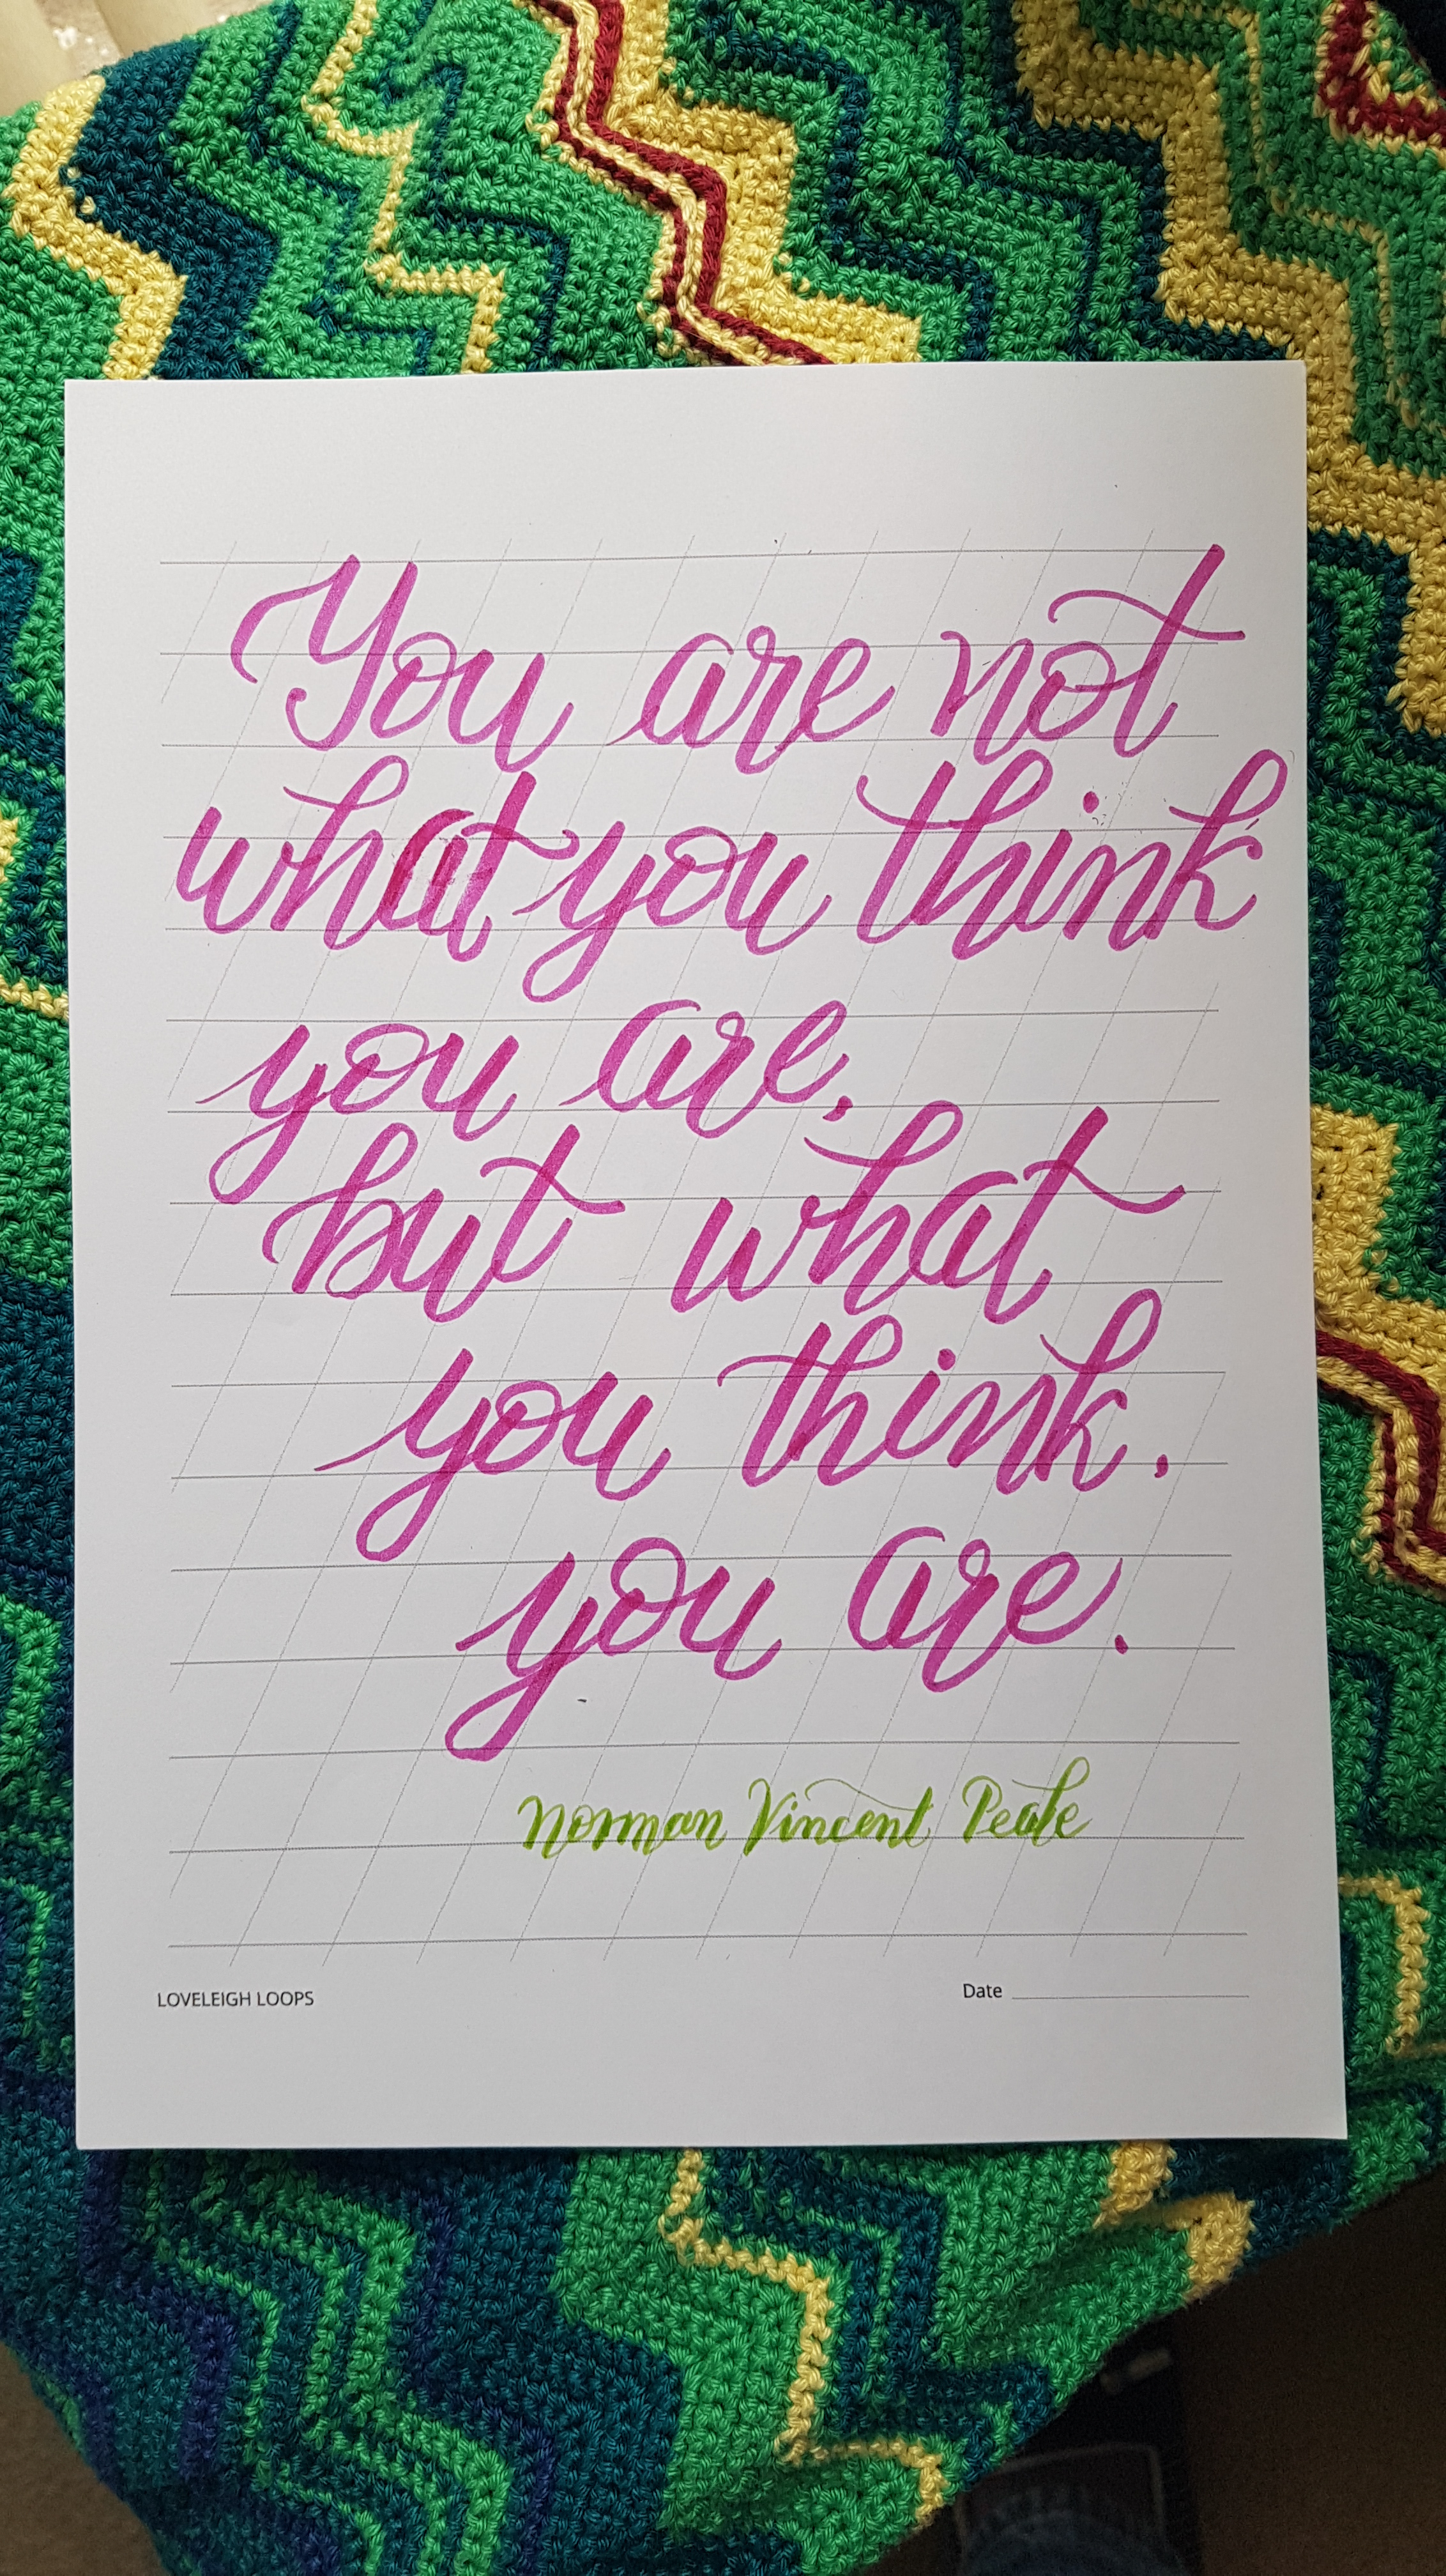 You are not
what you think
you are,
but what
you think.
you are.
Norman Vincent Peale
LOVELEIGH LOOPS
Date